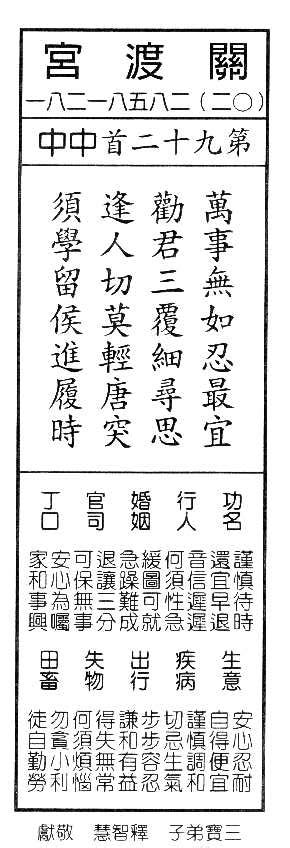 關渡宮
(〇二)二八五八一二八一
第九十二首中中
萬事無如忍最宜
勸君三覆細尋思
逢人切莫輕唐突
須學留侯進履時
功名
謹慎待時
還宜早退
行人
音信遲遲
何須性急
婚姻
緩圖可就
急躁難成
官司
退讓三分
可保無事
丁口
安心為囑
家和事興
生意
安心忍耐
自得便宜
疾病
謹慎調和
切忌生氣
出行
步步容忍
謙和有益
失物
得失無常
何須煩惱
田畜
勿貪小利
徒自勤勞
三寶弟子 釋智慧 敬獻